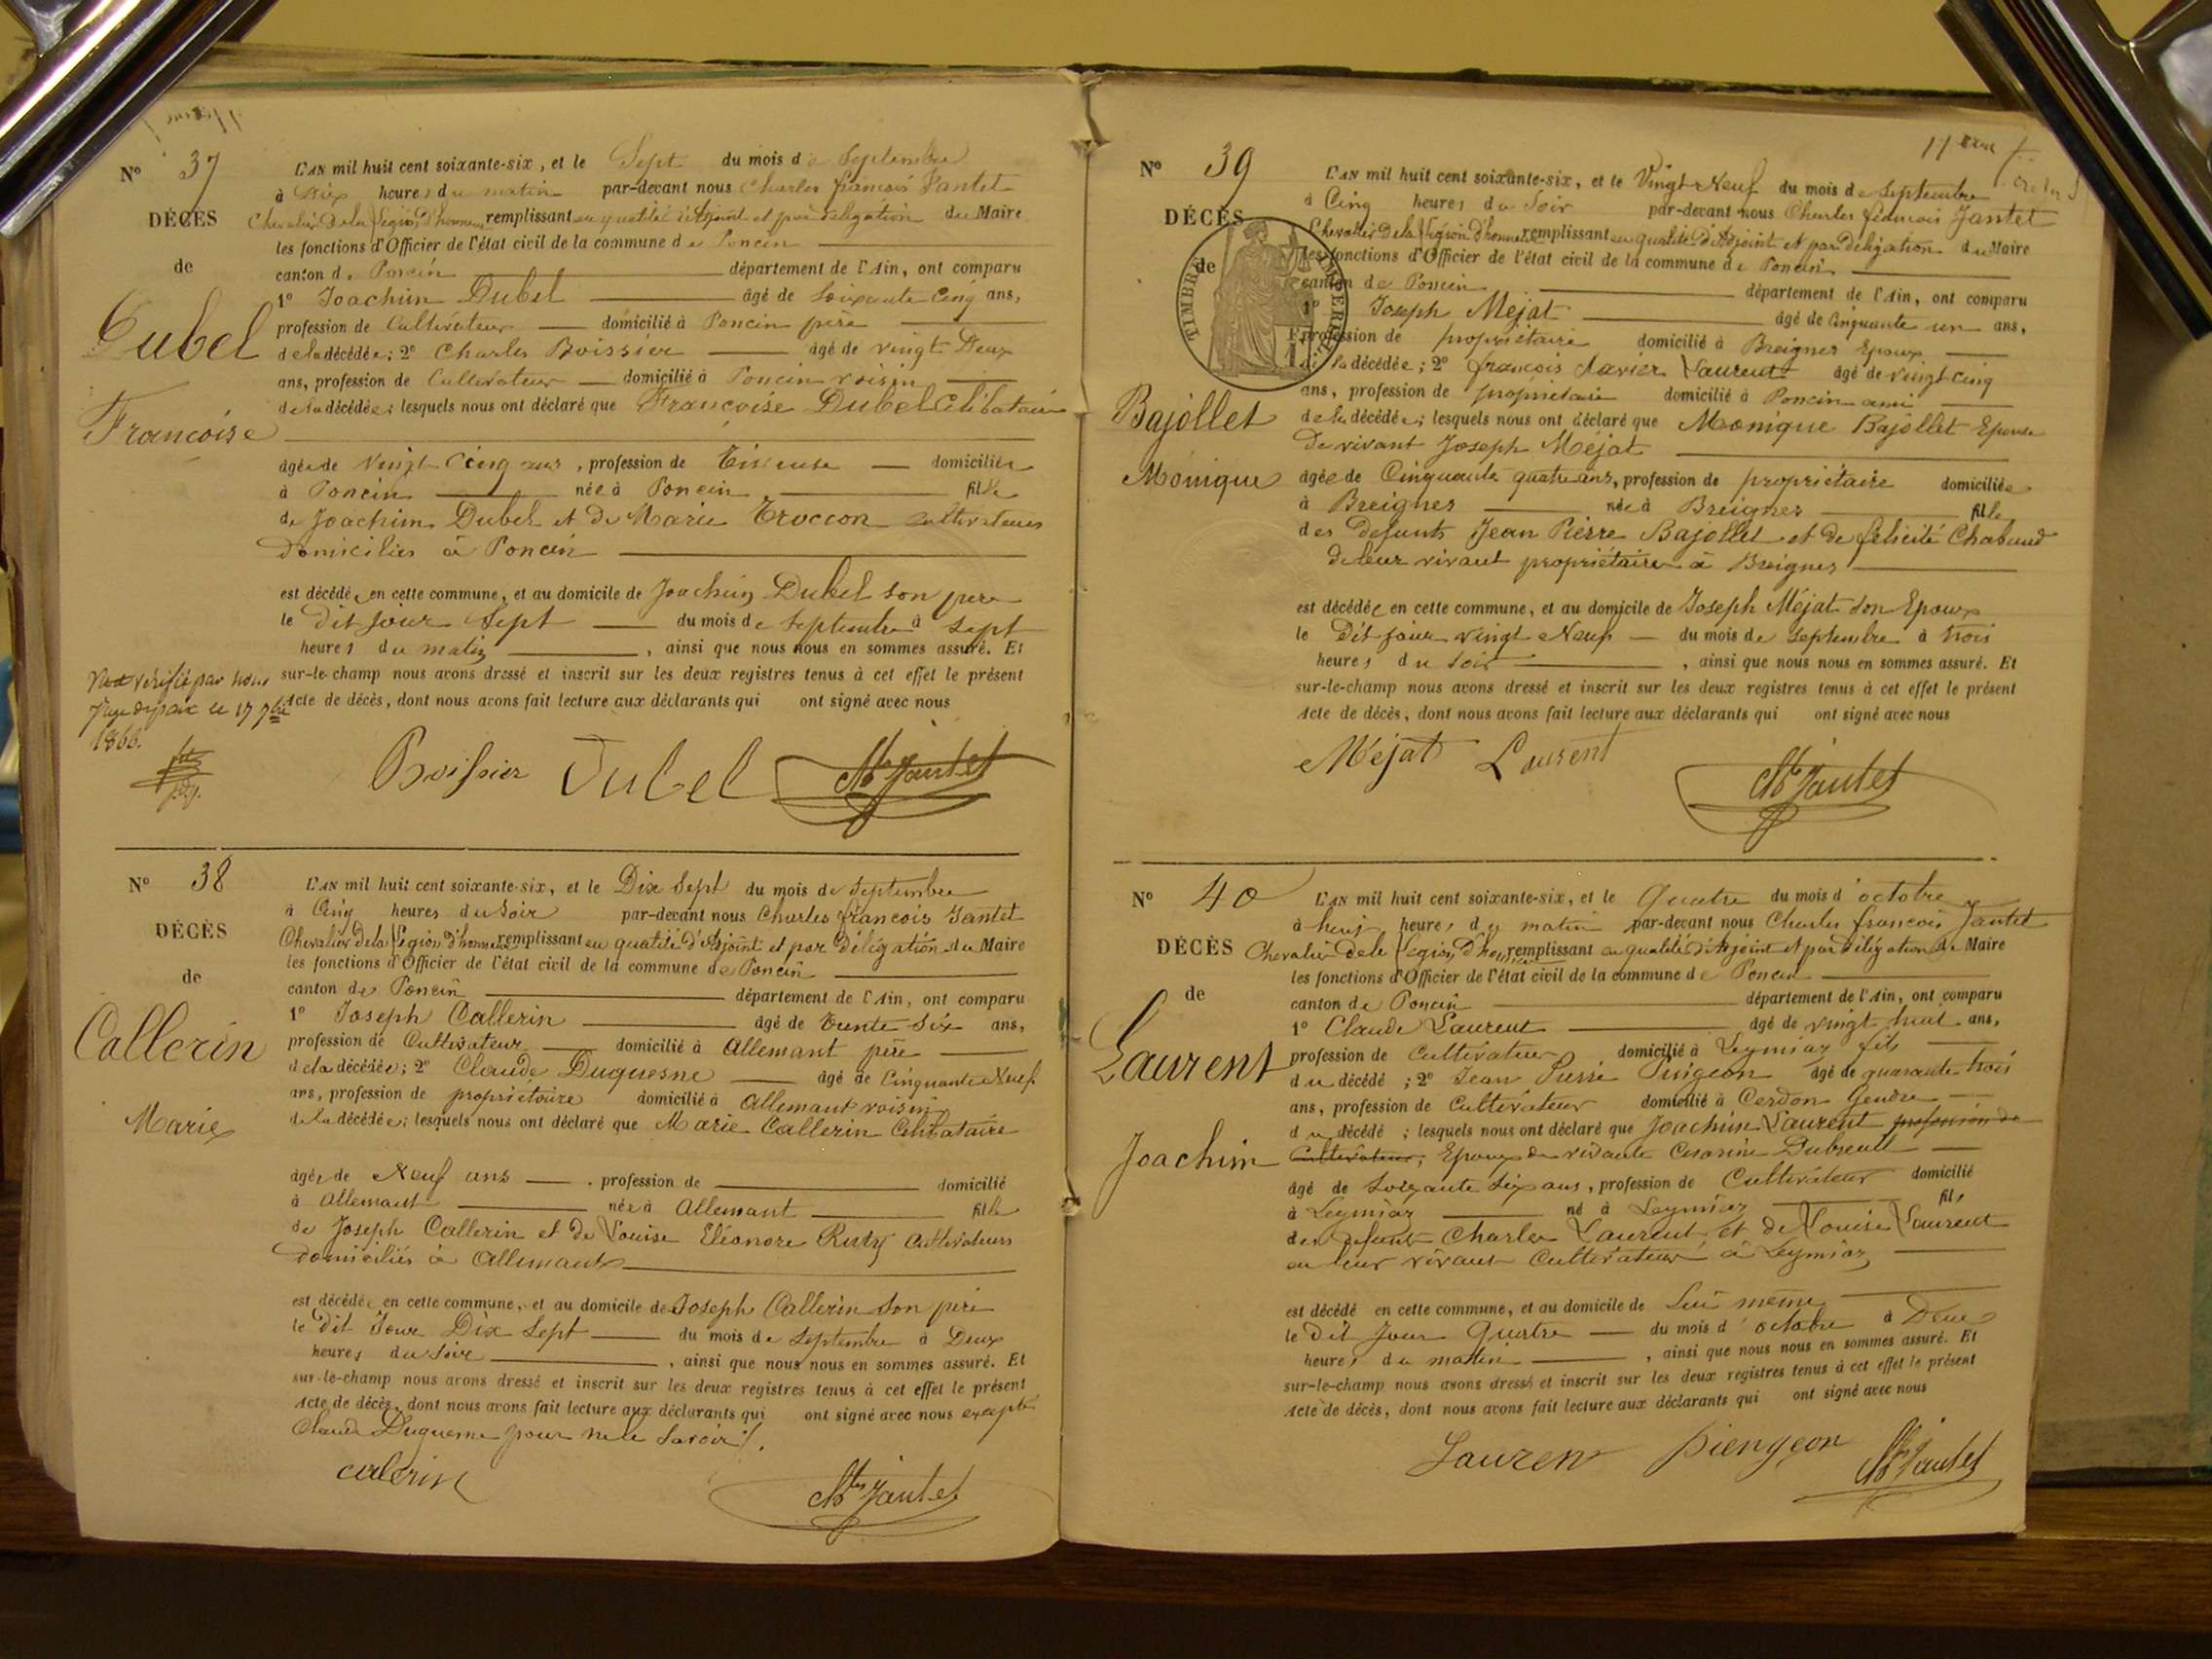 Nº 37
DÉCÈS
de
Dubel
Francoise
L'AN mil huit cent soixante-six, et le Sept du mois de Septembre
à Dix heures du matin par-devant nous Charles francois Jantet
Chevalier De la Légion d'honneur remplissant en qualité d'Adjoint et par délégation du Maire
les fonctions d'Officier de l'état civil de la commune de Poncin
canton de Poncin département de l'Ain, ont comparu
1º Joachim Dubel âgé de Soixante Cinq ans,
profession de Cultivateur domicilié à Poncin père
de la décédée; 2º Charles Boissier âgé de vingt Deux
ans, profession de Cultivateur domicilié à Poncin voisin
de la décédée; lesquels nous ont déclaré que Francoise Dubel Célibataire
âgée de Vingt Cinq ans, profession de Tisseuse domiciliée
à Poncin née à Poncin fille
de Joachim Dubel et de Marie Troccon Cultivateurs
Domiciliés à Poncin
est décédée en cette commune, et au domicile de Joachim Dubel son père
le Dit jour Sept du mois de Septembre à Sept
heures du matin, ainsi que nous nous en sommes assuré. Et
sur-le-champ nous avons dressé et inscrit sur les deux registres tenus à cet effet le présent
Acte de décès, dont nous avons fait lecture aux déclarants qui ont signé avec nous
vérifié par nous
Juge de paix le 17 7bre
1866.
Boissier Dubel Ch Jantet
Nº 38
DÉCÈS
de
Callerin
Marie
L'AN mil huit cent soixante-six, et le Dix Sept du mois de Septembre
à Cinq heures du Soir par-devant nous Charles francois Jantet
Chevalier de la Légion d'honneur remplissant en qualité d'Adjoint et par Délégation du Maire
les fonctions d'Officier de l'état civil de la commune de Poncin
canton de Poncin département de l'Ain, ont comparu
1º Joseph Callerin âgé de Trente Six ans,
profession de Cultivateur domicilié à Allemant père
de la décédée; 2º Claude Duquesne âgé de Cinquante Neuf
ans, profession de propriétaire domicilié à Allemant voisin
de la décédée; lesquels nous ont déclaré que Marie Callerin Célibataire
âgée de Neuf ans, profession de domicilié
à Allemant née à Allemant fille
de Joseph Callerin et de Louise Eléonore Ruty Cultivateurs
Domiciliés à Allemant
est décédée en cette commune, et au domicile de Joseph Callerin son père
le dit Jour Dix Sept du mois de Septembre à Deux
heures du Soir, ainsi que nous nous en sommes assuré. Et
sur-le-champ nous avons dressé et inscrit sur les deux registres tenus à cet effet le présent
Acte de décès, dont nous avons fait lecture aux déclarants qui ont signé avec nous excepté
Claude Duquesne pour ne le Savoir.
calerin Ch Jantet
Nº 39
DÉCÈS
de
TIMBRE IMPERIAL
Bajollet
Monique
L'AN mil huit cent soixante-six, et le Vingt Neuf du mois de Septembre
à Cinq heures du Soir par-devant nous Charles francois Jantet
Chevalier De la Légion D'honneur remplissant en qualité D'Adjoint et par Délégation du Maire
les fonctions d'Officier de l'état civil de la commune de Poncin
canton de Poncin département de l'Ain, ont comparu
1º Joseph Mejat âgé de Cinquante un ans,
profession de propriétaire domicilié à Breignes Epoux
de la décédée; 2º francois Xavier Laurent âgé de vingt cinq
ans, profession de propriétaire domicilié à Poncin ami
de la décédée; lesquels nous ont déclaré que Monique Bajollet Epouse
De vivant Joseph Méjat
âgée de Cinquante quatre ans, profession de propriétaire domiciliée
à Breignes née à Breignes fille
des Défunts Jean Pierre Bajollet et de félicité Chaband
de leur vivant propriétaires à Breignes
est décédée en cette commune, et au domicile de Joseph Méjat son Epoux
le Dit jour vingt Neuf du mois de Septembre à trois
heures du Soir, ainsi que nous nous en sommes assuré. Et
sur-le-champ nous avons dressé et inscrit sur les deux registres tenus à cet effet le présent
Acte de décès, dont nous avons fait lecture aux déclarants qui ont signé avec nous
Méjat Laurent
Ch Jantet
Nº 40
DÉCÈS
de
Laurent
Joachim
L'AN mil huit cent soixante-six, et le Quatre du mois d'octobre
à heures du matin par-devant nous Charles francois Jantet
Chevalier de la Légion D'honneur remplissant en qualité d'Adjoint et par Délégation du Maire
les fonctions d'Officier de l'état civil de la commune de Poncin
canton de Poncin département de l'Ain, ont comparu
1º Claude Laurent âgé de vingt huit ans,
profession de Cultivateur domicilié à Leymiaz fils
du décédé; 2º Jean Pierre âgé de quarante trois
ans, profession de Cultivateur domicilié à Cerdon Gendre
du décédé; lesquels nous ont déclaré que Joachim Laurent profession de
Cultivateur, Epoux de vivante Césarine Dubreuil
âgé de Soixante Six ans, profession de Cultivateur domicilié
à Leymiaz né à Leymiaz fils
des défunts Charles Laurent et de Louise Laurent
en leur vivant Cultivateurs à Leymiaz
est décédé en cette commune, et au domicile de Lui même
le Dit Jour Quatre du mois d'octobre à Deux
heures du matin, ainsi que nous nous en sommes assuré. Et
sur-le-champ nous avons dressé et inscrit sur les deux registres tenus à cet effet le présent
Acte de décès, dont nous avons fait lecture aux déclarants qui ont signé avec nous
Laurent Piengeon Ch Jantet